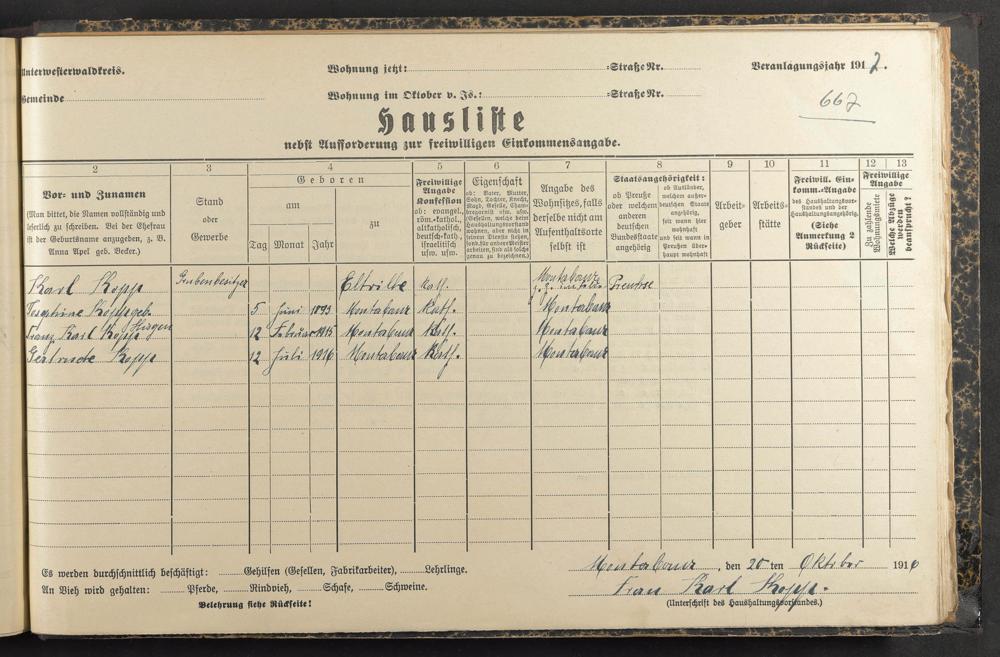 Unterwesterwaldkreis.
Wohnung jetzt: =Straße Nr.
Veranlagungsjahr 1917.
Gemeinde
Wohnung im Oktober v. Js.: =Straße Nr.
667
Hausliste
nebst Aufforderung zur freiwilligen Einkommensangabe.
2 3 4 5 6 7 8 9 10 11 12 13
Vor- und Zunamen
(Man bittet, die Namen vollständig und
leserlich zu schreiben. Bei der Ehefrau
ist der Geburtsname anzugeben, z. B.
Anna Apel geb. Becker.)
Stand
oder
Gewerbe
Geboren
am
zu
Tag Monat Jahr
Freiwillige
Angabe
Konfession
ob: evangel.,
röm.-kathol.,
altkatholisch,
deutsch-kath.,
israelitisch
usw. usw.
Eigenschaft
ob: Vater, Mutter,
Sohn, Tochter, Knecht,
Magd, Geselle, Cham-
bregarnist usw. usw.
(Gesellen, welche beim
Haushaltungsvorstand
wohnen, aber nicht in
seinem Dienste stehen,
sond. für andere Meister
arbeiten, sind als solche
genau zu bezeichnen.)
Angabe des
Wohnsitzes, falls
derselbe nicht am
Aufenthaltsorte
selbst ist
Staatsangehörigkeit:
ob Preuße
oder welchem
anderen
deutschen
Bundesstaate
angehörig
ob Ausländer,
welchem außer-
deutschen Staate
angehörig,
seit wann hier
wohnhaft
und seit wann in
Preußen über-
haupt wohnhaft
Arbeit-
geber
Arbeits-
stätte
Freiwill. Ein-
komm.-Angabe
des Haushaltungsvor-
standes und der
Haushaltungsangehörig.
(Siehe
Anmerkung 2
Rückseite)
Freiwillige
Angabe
Zu zahlende
Wohnungsmiete
Welche Abzüge
werden
beansprucht?
Karl Kopp Grubenbesitzer Eltville Kath. Montabaur Preuße
Josephine Kopp geb. 5 Juni 1893 Montabaur Kath. Montabaur
Franz Karl Kopp 12 Februar 1915 Montabaur Kath. Montabaur
Gertrude Kopp 12 Juli 1916 Montabaur Kath. Montabaur
Es werden durchschnittlich beschäftigt: Gehilfen (Gesellen, Fabrikarbeiter), Lehrlinge.
An Vieh wird gehalten: Pferde, Rindvieh, Schafe, Schweine.
Belehrung siehe Rückseite!
Montabaur, den 20 ten Oktober 1916
Frau Karl Kopp.
(Unterschrift des Haushaltungsvorstandes.)